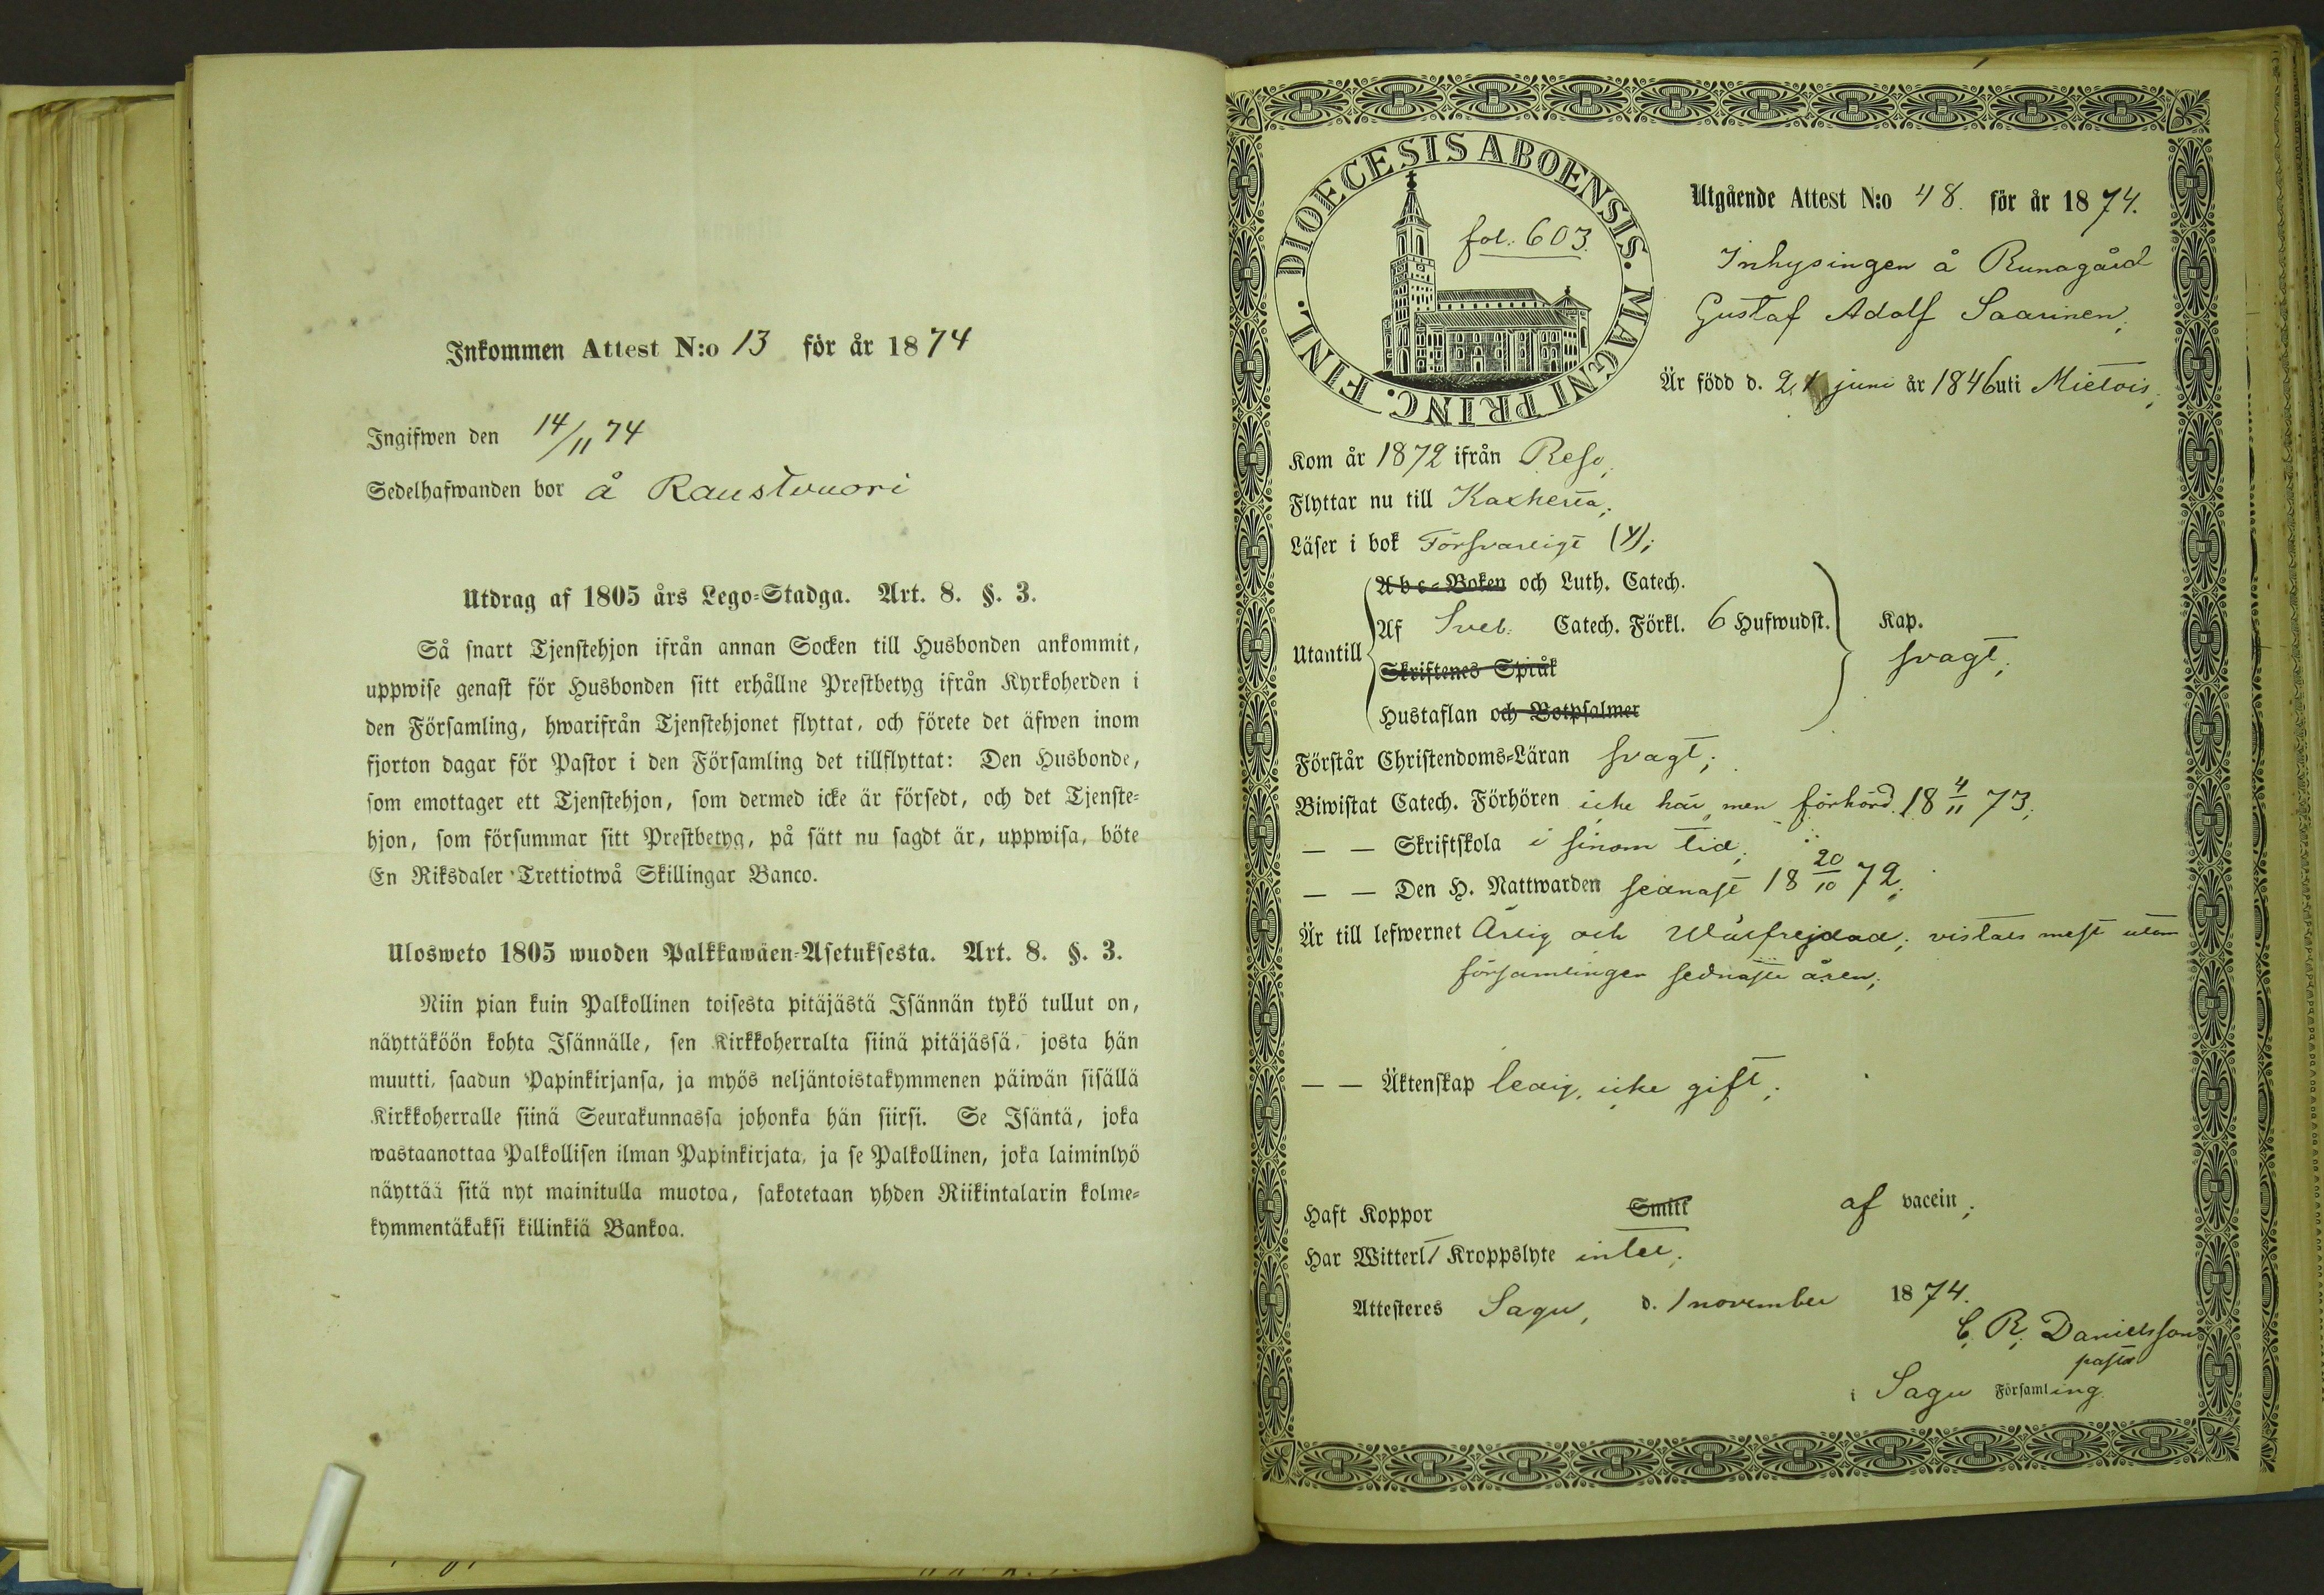 Inkommen Attest N:o 13 för år 1874
Ingifwen den 14/11 74
Sedelhafwanden bor å Raustvuori
Utdrag af 1805 års Lego-Stadga. Art. 8. §. 3.
Så snart Tjenstehjon ifrån annan Socken till Husbonden ankommit,
uppwise genast för Husbonden sitt erhållne Prestbetyg ifrån Kyrkoherden i
den Församling, hwarifrån Tjenstehjonet flyttat, och förete det äfwen inom
fjorton dagar för Pastor i den Församling det tillflyttat: Den Husbonde,
som emottager ett Tjenstehjon, som dermed icke är försedt, och det Tjenste-
hjon, som försummar sitt Prestbetyg, på sätt nu sagdt är, uppwisa, böte
En Riksdaler Trettiotwå Skillingar Banco.
Ulosweto 1805 wuoden Palkkawäen-Asetuksesta. Art. 8. §. 3.
Niin pian kuin Palkollinen toisesta pitäjästä Isännän tykö tullut on,
näyttäköön kohta Isännälle, sen Kirkkoherralta siinä pitäjässä, josta hän
muutti, saadun Papinkirjansa, ja myös neljäntoistakymmenen päiwän sisällä
Kirkkoherralle siinä Seurakunnassa johonka hän siirsi. Se Isäntä, joka
wastaanottaa Palkollisen ilman Papinkirjata, ja se Palkollinen, joka laiminlyö
näyttää sitä nyt mainitulla muotoa, sakotetaan yhden Riikintalarin kolme-
kymmentäkaksi killinkiä Bankoa.
DIOECESIS ABOENSIS. MAGNI PRINC. FINL.
fol. 603.
Utgående Attest N:o 48. för år 1874.
Inhysingen å Runagård
Gustaf Adolf Saarinen;
Är född d. 21 juni år 1846 uti Mietois;
Kom år 1872 ifrån Reso;
Flyttar nu till Kakskerta;
Läser i bok Försvarligt (Y);
Utantill
Abc-Boken och Luth. Catech.
Af Sveb. Catech. Förkl. 6 Hufwudst. Kap.
svagt;
Skriftenes Språk
Hustaflan och Botpsalmer
Förstår Christendoms-Läran svagt;
Biwistat Catech. Förhören icke här, men förhörd 18 4/11 73;
— — Skriftskola i sinom tid;
— — Den H. Nattwarden sednast 18 20/10 72;
Är till lefwernet Ärlig och Välfrejdad; vistats mest utom
församlingen sednaste åren;
— — Äktenskap ledig, icke gift;
Haft Koppor Smitt af vaccin;
Har Witterl. Kroppslyte intet;
Attesteres Sagu, d. 1 november 1874.
C. R. Danielsson
pastor
i Sagu Församling.